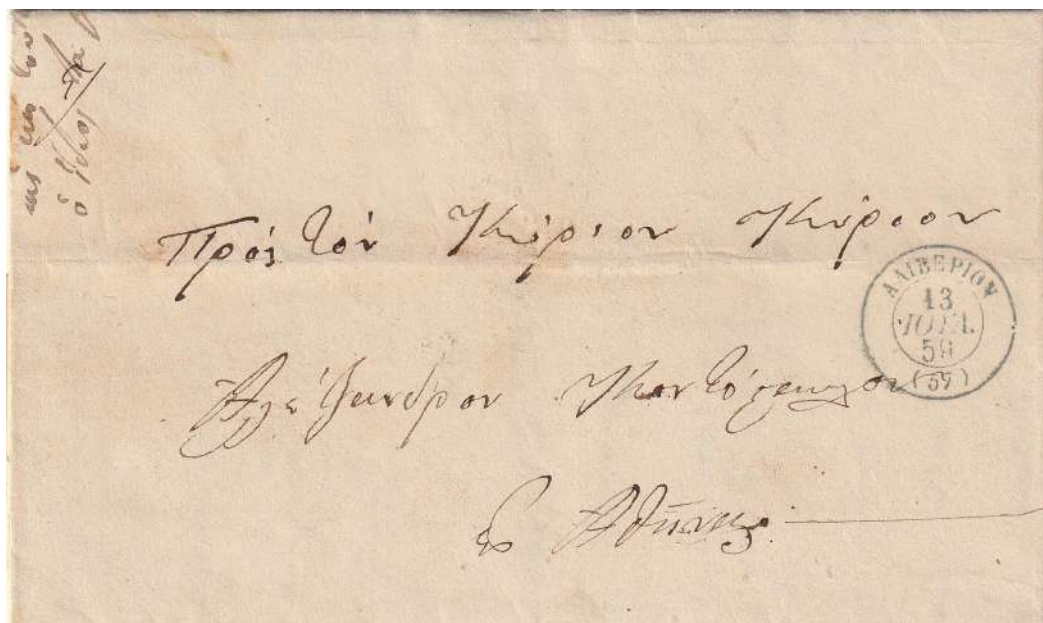 Πρός τόν Κύριον Κύριον
Αλέξανδρον Κοντόσταυλον
εἰς Αθήνας
ΑΛΙΒΕΡΙΟΝ
13
ΙΟΥΛ.
59
(57)
ὁ ἴδιος